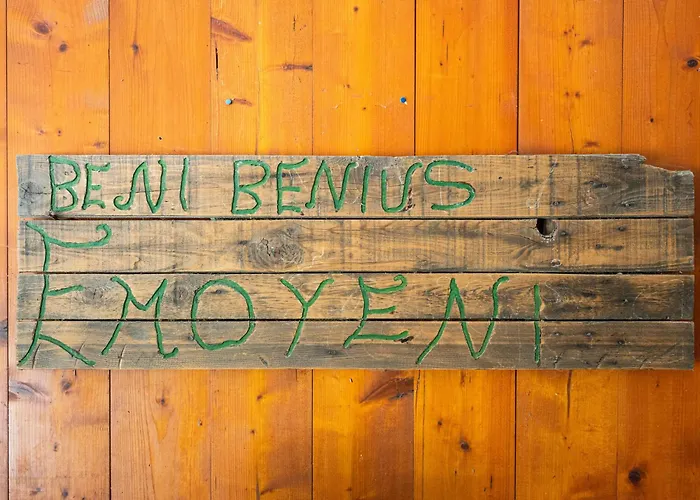 BENI BENIUS
EMOYENI